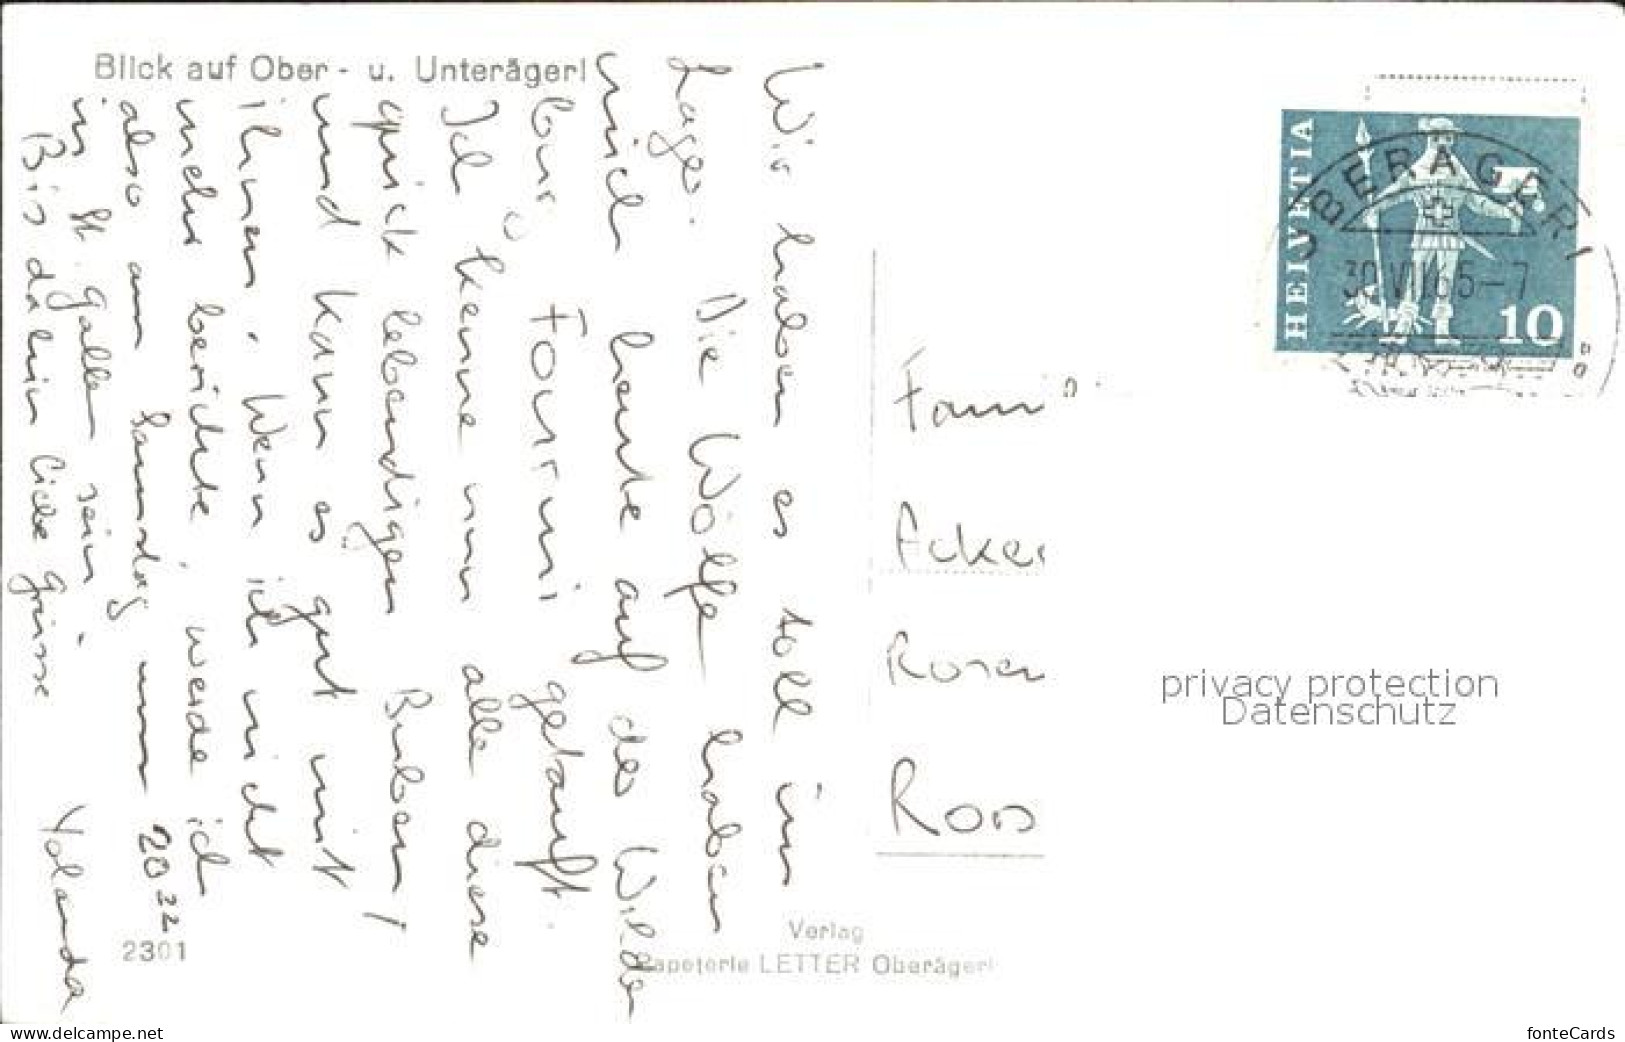 Blick auf Ober- u. Unterägeri
Wir haben es toll im
Lager. Die Wölfe haben
mich heute auf den Wilden
Fourmi getauft.
Ich kenne nun alle diese
quick lebendigen Buben!
und kann es gut mit
ihnen. Wenn ich nicht
mehr berichte, werde ich
also am Samstag um 20 32
in St. Gallen sein.
Bis dahin liebe Grüsse
Yolanda
HELVETIA
10
OBERÄGERI
65-7
Fam
Acker
Rosen
Verlag
Papeterie LETTER Oberägeri
2301
privacy protection
Datenschutz
www.delcampe.net
fonteCards